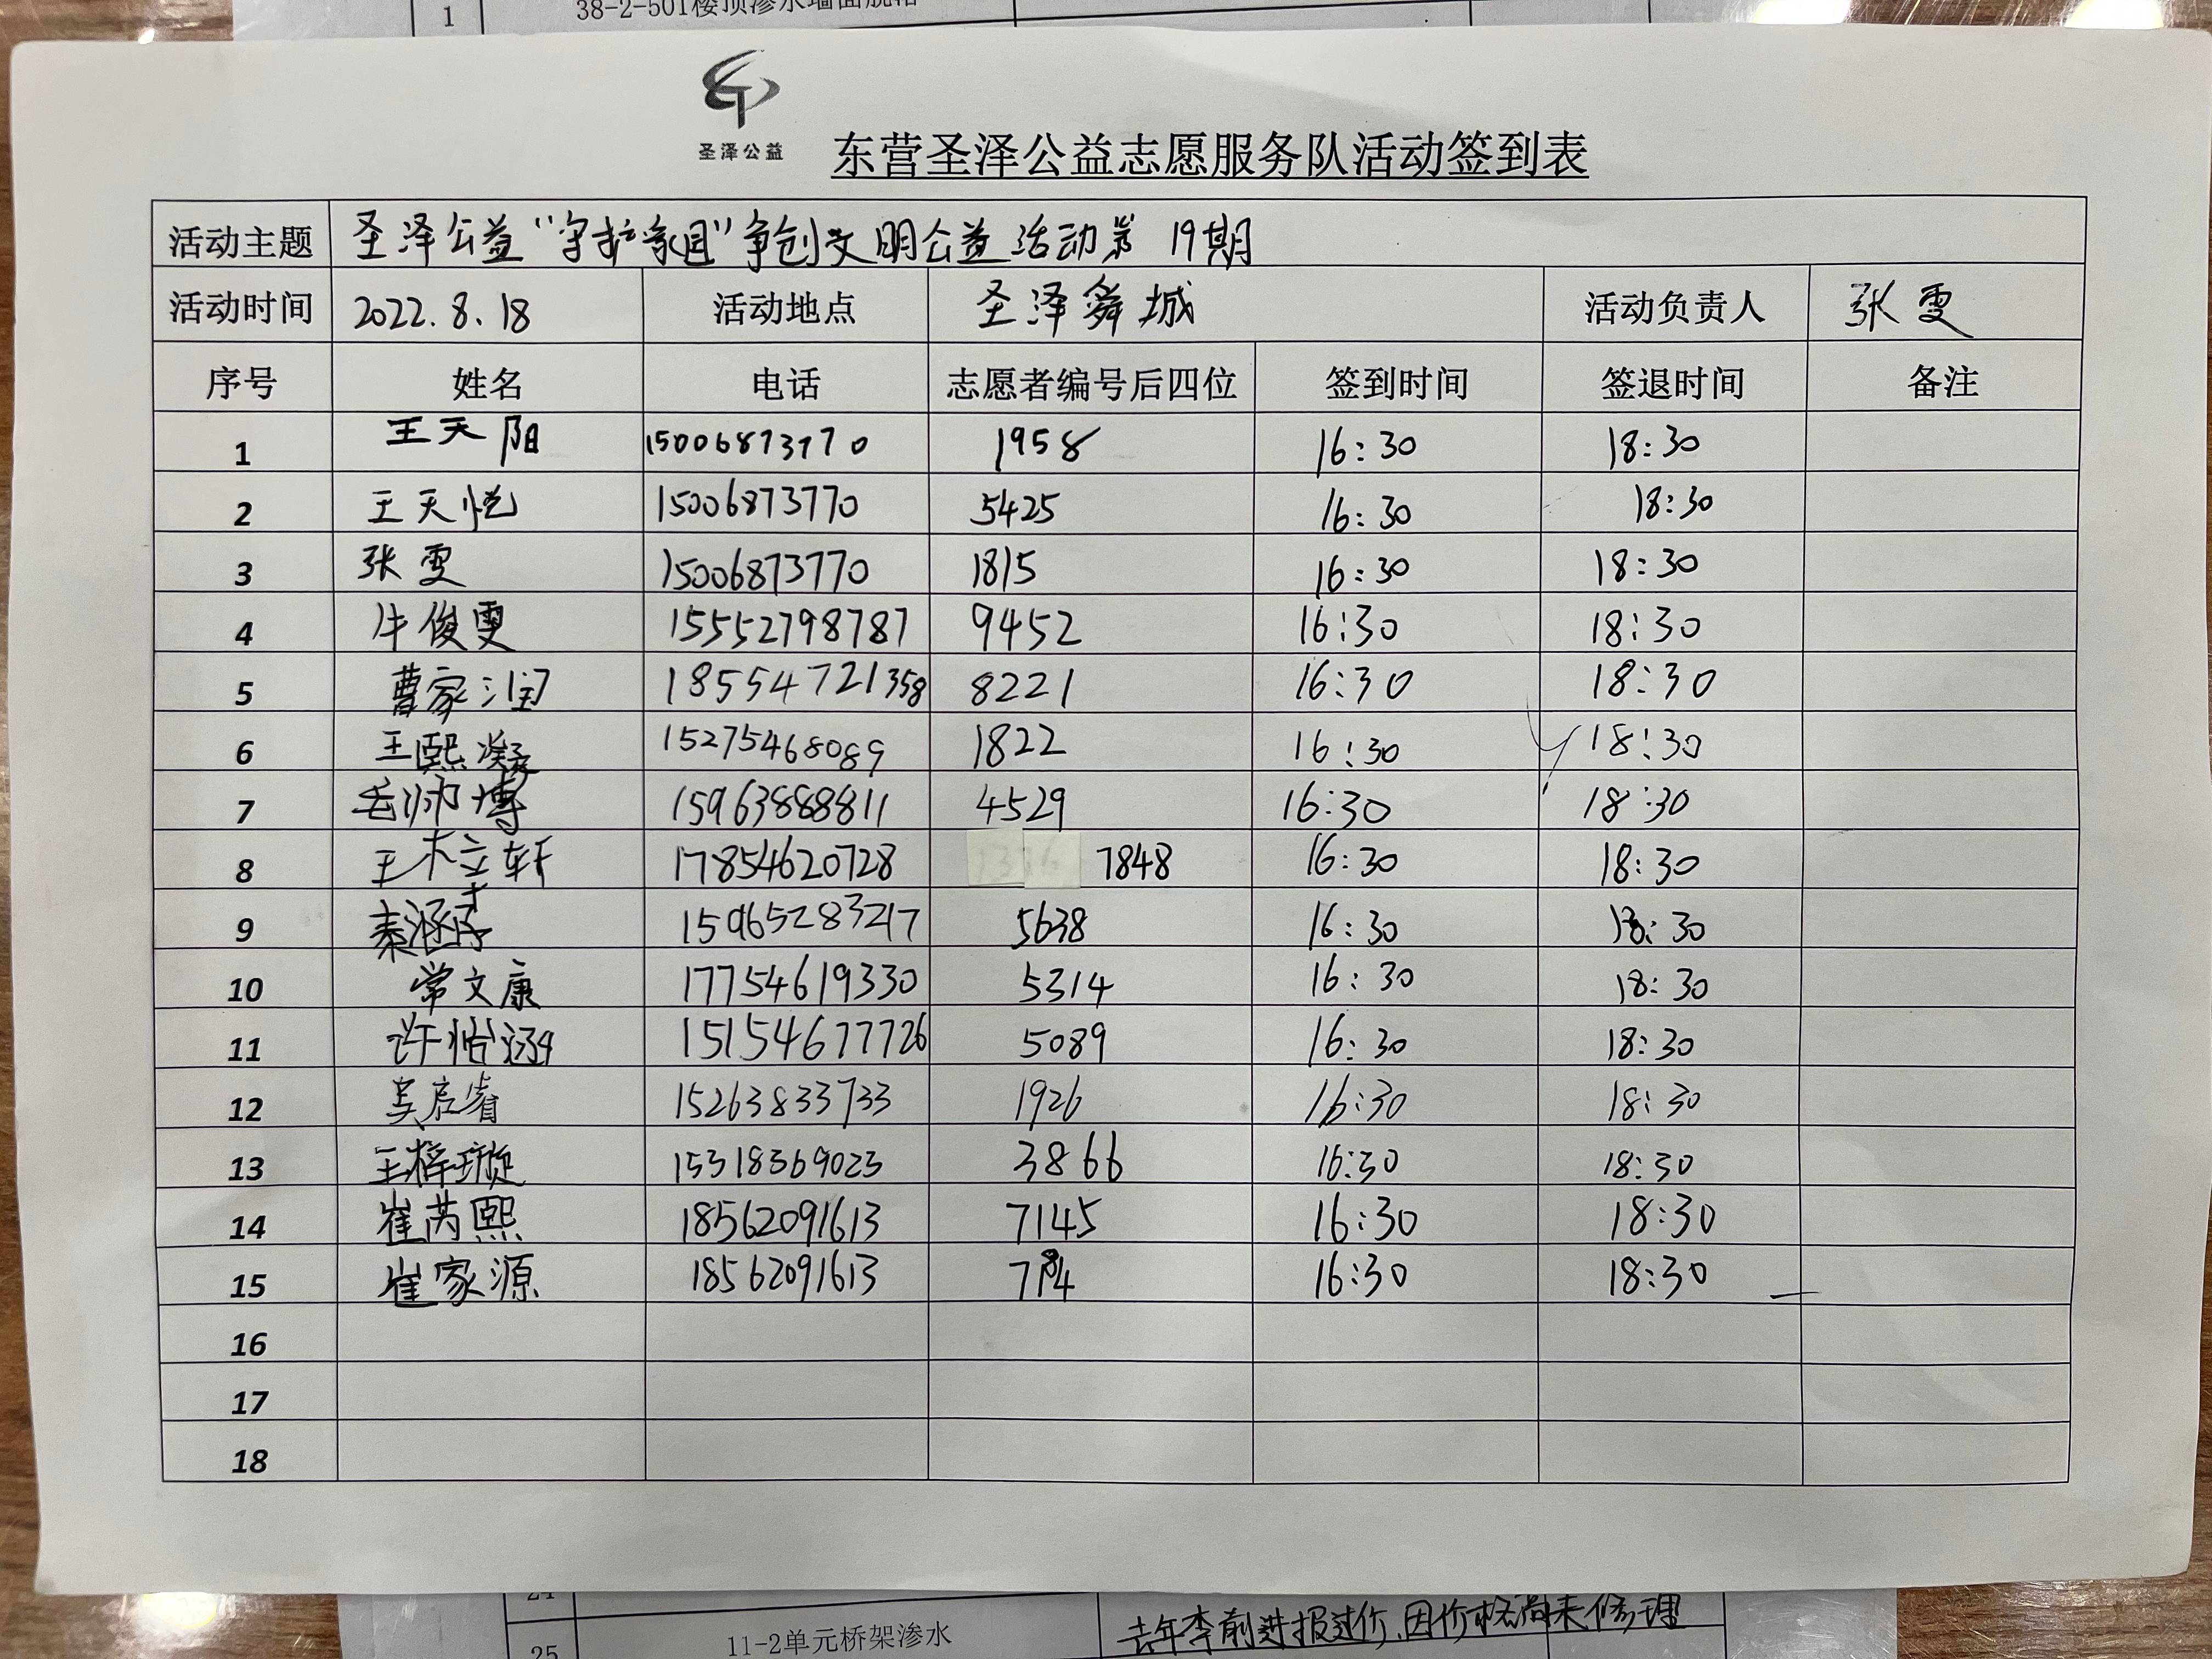 1 38-2-501楼顶渗水墙面脱落
圣泽公益
东营圣泽公益志愿服务队活动签到表
活动主题 圣泽公益“守护家园”争创文明公益活动第19期
活动时间 2022.8.18 活动地点 圣泽舜城 活动负责人 张雯
序号 姓名 电话 志愿者编号后四位 签到时间 签退时间 备注
1 王天阳 15006873770 1958 16:30 18:30
2 王天悦 15006873770 5425 16:30 18:30
3 张雯 15006873770 1815 16:30 18:30
4 牛俊雯 15552798787 9452 16:30 18:30
5 曹家润 18554721358 8221 16:30 18:30
6 王熙凝 15275468089 1822 16:30 18:30
7 毛帅博 15963888811 4529 16:30 18:30
8 王梓轩 17854620728 7848 16:30 18:30
9 秦涵 15965283217 5638 16:30 18:30
10 常文康 17754619330 5314 16:30 18:30
11 许怡涵 15154677726 5089 16:30 18:30
12 吴启睿 15263833733 1926 16:30 18:30
13 王梓璇 15318369023 3866 16:30 18:30
14 崔芮熙 18562091613 7145 16:30 18:30
15 崔家源 18562091613 16:30 18:30
16
17
18
24
25 11-2单元桥架渗水 去年李前进报过价,因价格尚未修理